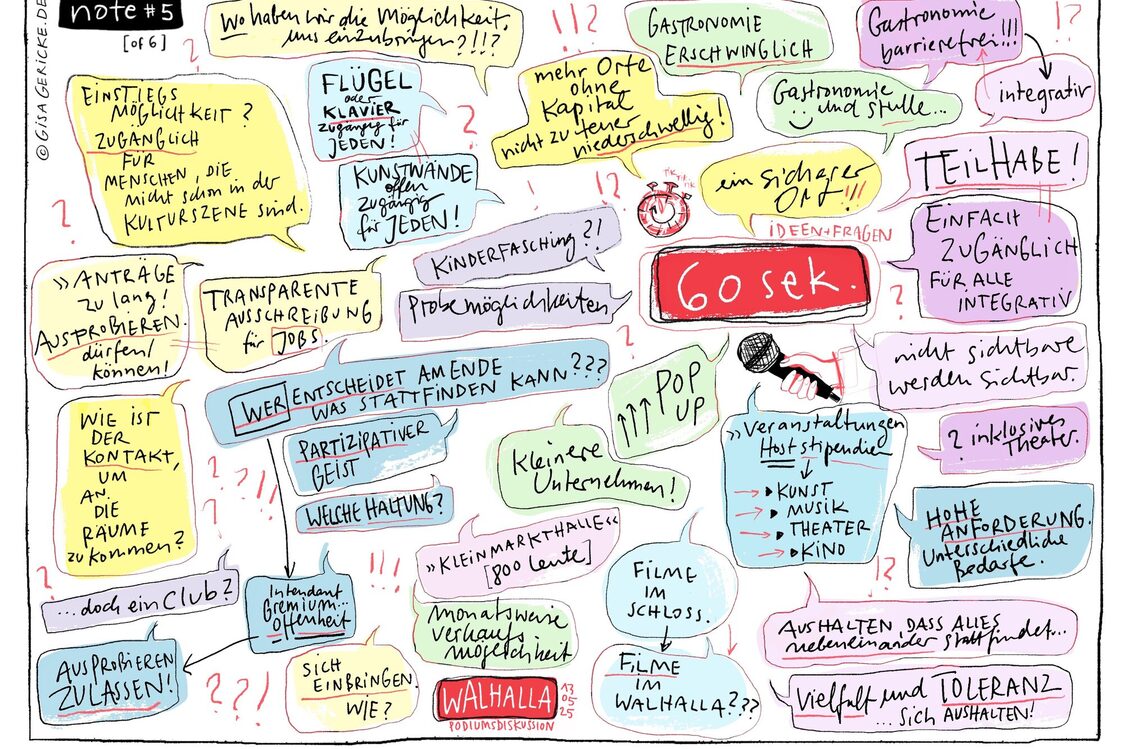 note #5
[of 6]
© GISA GERICKE.DE
Wo haben wir die Möglichkeit,
uns einzubringen?!!?
GASTRONOMIE
ERSCHWINGLICH
Gastronomie
barrierefrei!!!
integrativ
EINSTIEGS
MÖGLICHKEIT?
ZUGÄNGLICH
FÜR
MENSCHEN, DIE
nicht schon in der
KULTURSZENE sind.
FLÜGEL
oder
KLAVIER
zugängig für
JEDEN!
mehr Orte
ohne
Kapital
nicht zu teuer
niederschwellig!
Gastronomie
und stulle...
KUNSTWÄNDE
offen
zugängig
für JEDEN!
TIK
TIK
ein sicherer
Ort!!!
TEILHABE!
IDEEN+FRAGEN
60 sek.
EINFACH
ZUGÄNGLICH
FÜR ALLE
INTEGRATIV
KINDERFASCHING?!
Probemöglichkeiten
»ANTRÄGE
zu lang!
AUSPROBIEREN.
dürfen/
können!
TRANSPARENTE
AUSSCHREIBUNG
für JOBS.
nicht sichtbare
werden sichtbar.
WER ENTSCHEIDET AM ENDE
WAS STATTFINDEN KANN???
POP
UP
»Veranstaltungen
Hoststipendien
KUNST
MUSIK
THEATER
KINO
? inklusives
Theater.
WIE IST
DER
KONTAKT,
UM
AN.
DIE
RÄUME
zu kommen?
PARTIZIPATIVER
GEIST
WELCHE HALTUNG?
kleinere
Unternehmen!
HOHE
ANFORDERUNG.
Unterschiedliche
Bedarfe.
»KLEINMARKTHALLE«
[800 leute]
FILME
IM
SCHLOSS.
...doch ein Club?
Intendant
Gremium...
Offenheit
monatsweise
verkaufs
möglichkeit
AUSHALTEN, DASS ALLES
nebeneinander stattfindet...
AUSPROBIEREN
ZULASSEN!
SICH
EINBRINGEN.
WIE?
FILME
IM
WALHALLA???
Vielfalt und TOLERANZ
...sich AUSHALTEN!
WALHALLA
13
05
25
PODIUMSDISKUSSION